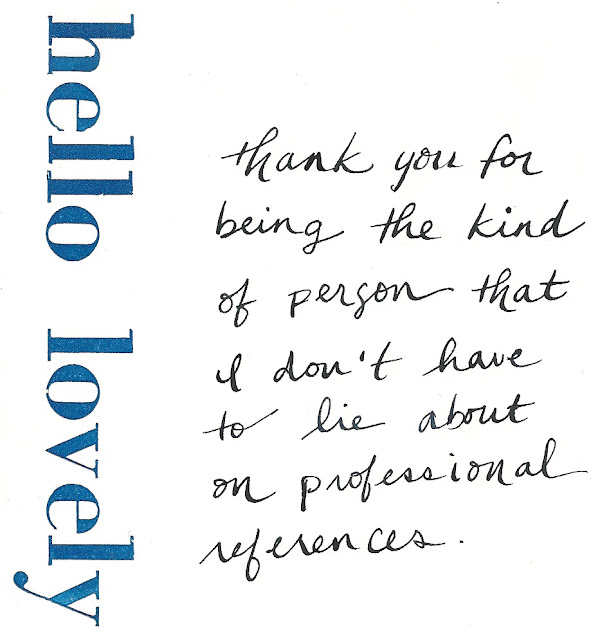 hello lovely
thank you for
being the kind
of person that
I don't have
to lie about
on professional
references.